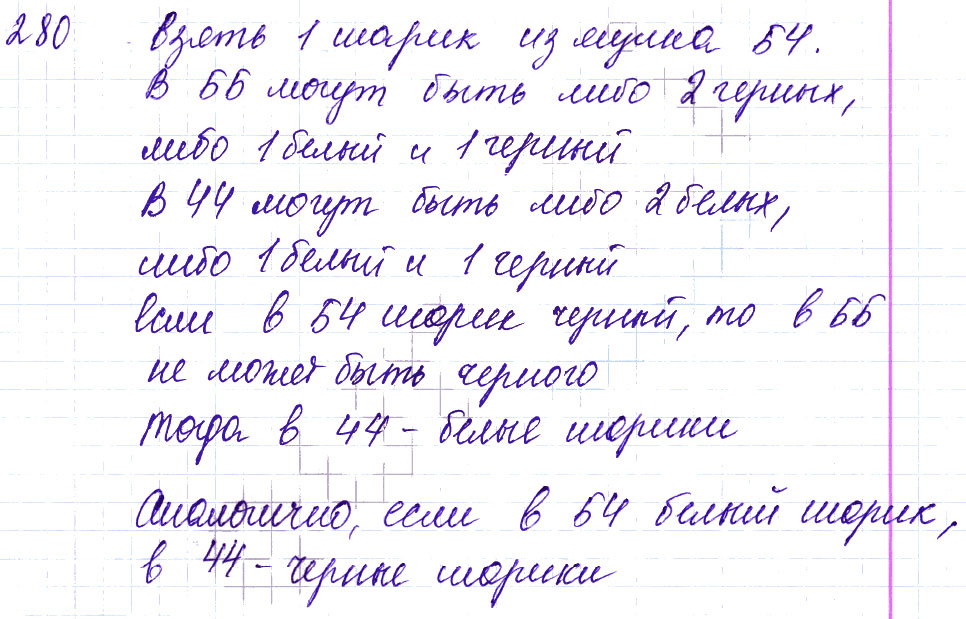 280 Взять 1 шарик из ящика БЧ.
В ББ могут быть либо 2 черных,
либо 1 белый и 1 черный
В ЧЧ могут быть либо 2 белых,
либо 1 белый и 1 черный
Если в БЧ шарик черный, то в ББ
не может быть черного
Тогда в ЧЧ - белые шарики
Аналогично, если в БЧ белый шарик,
в ЧЧ - черные шарики